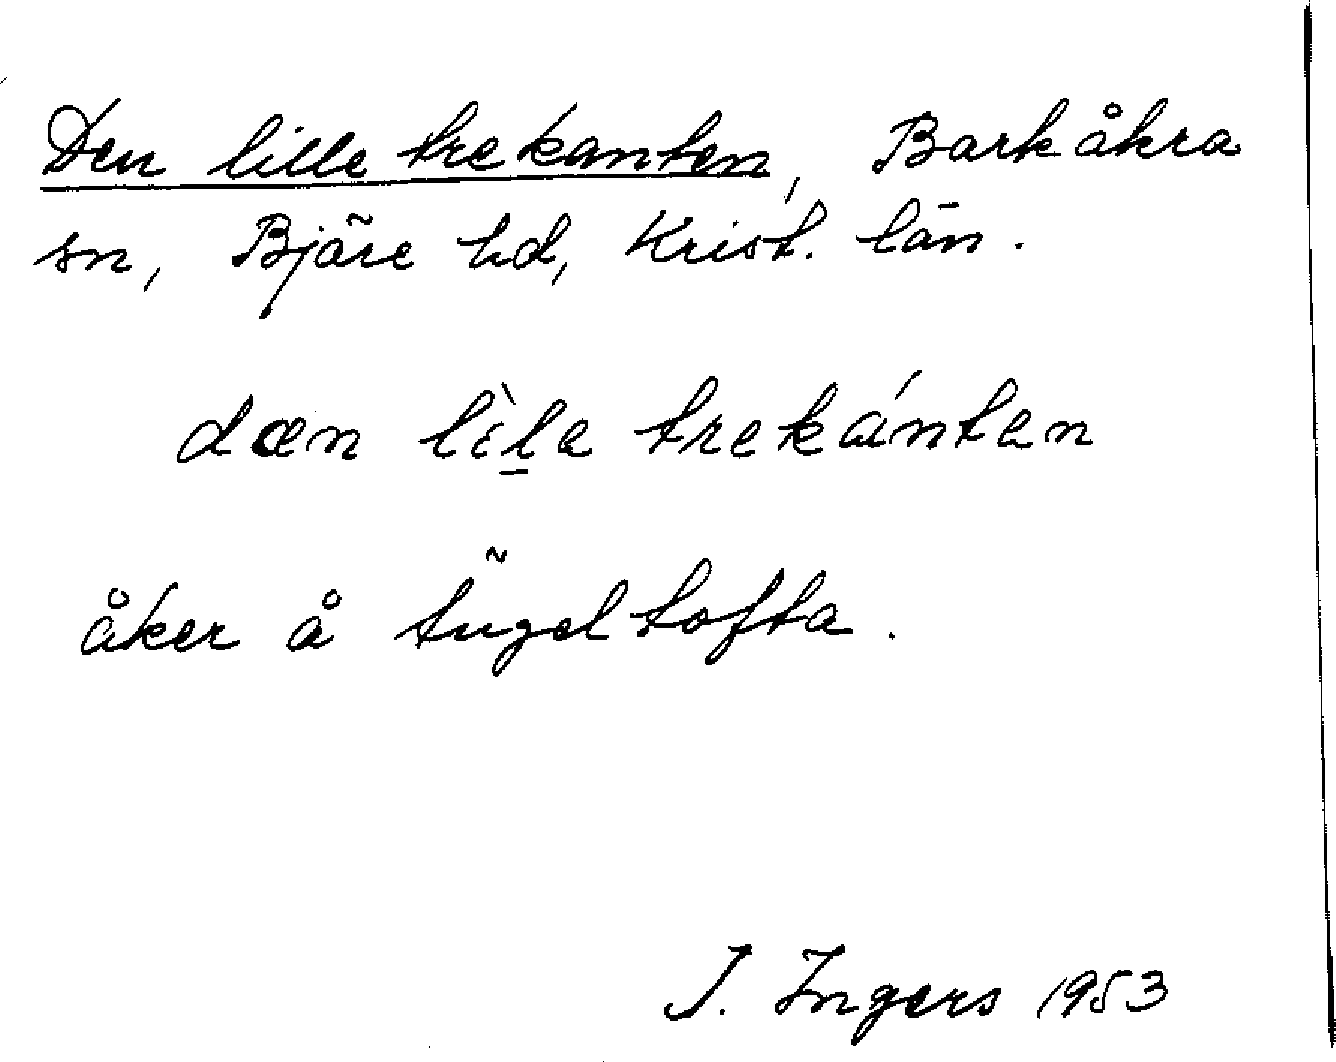 Den lille trekanten, Barkåkra
sn, Bjäre hd, Krist. län.
dæn lìl̲a trekánten
åker å tügeltofta.
I. Ingers 1953